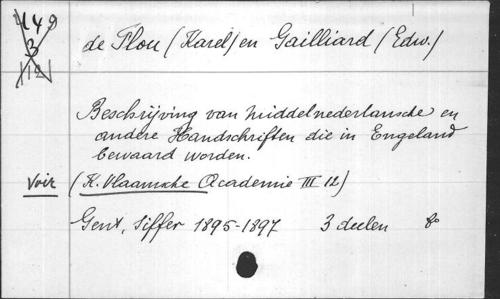 149
3
112
de Flou (Karel) en Gailliard (Edw.)
Beschrijving van middelnederlansche en
andere Handschriften die in Engeland
bewaard worden.
Voir (K. Vlaamsche Academie III 12)
Gent, Siffer 1895-1897 3 deelen 8o